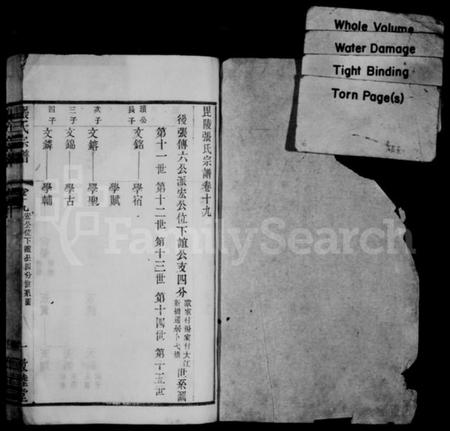 Whole Volume
Water Damage
Tight Binding
Torn Page(s)
毘陵張氏宗譜卷十九
後張傳六公派宏公位下誼公支四分
世系圖
第十一世 第十二世 第十三世 第十四世 第十五世
長子 文銘 學宿
學賦
次子 文鎔 學聖
三子 文錫 學古
四子 文鏻 學輔
張氏宗譜
FamilySearch